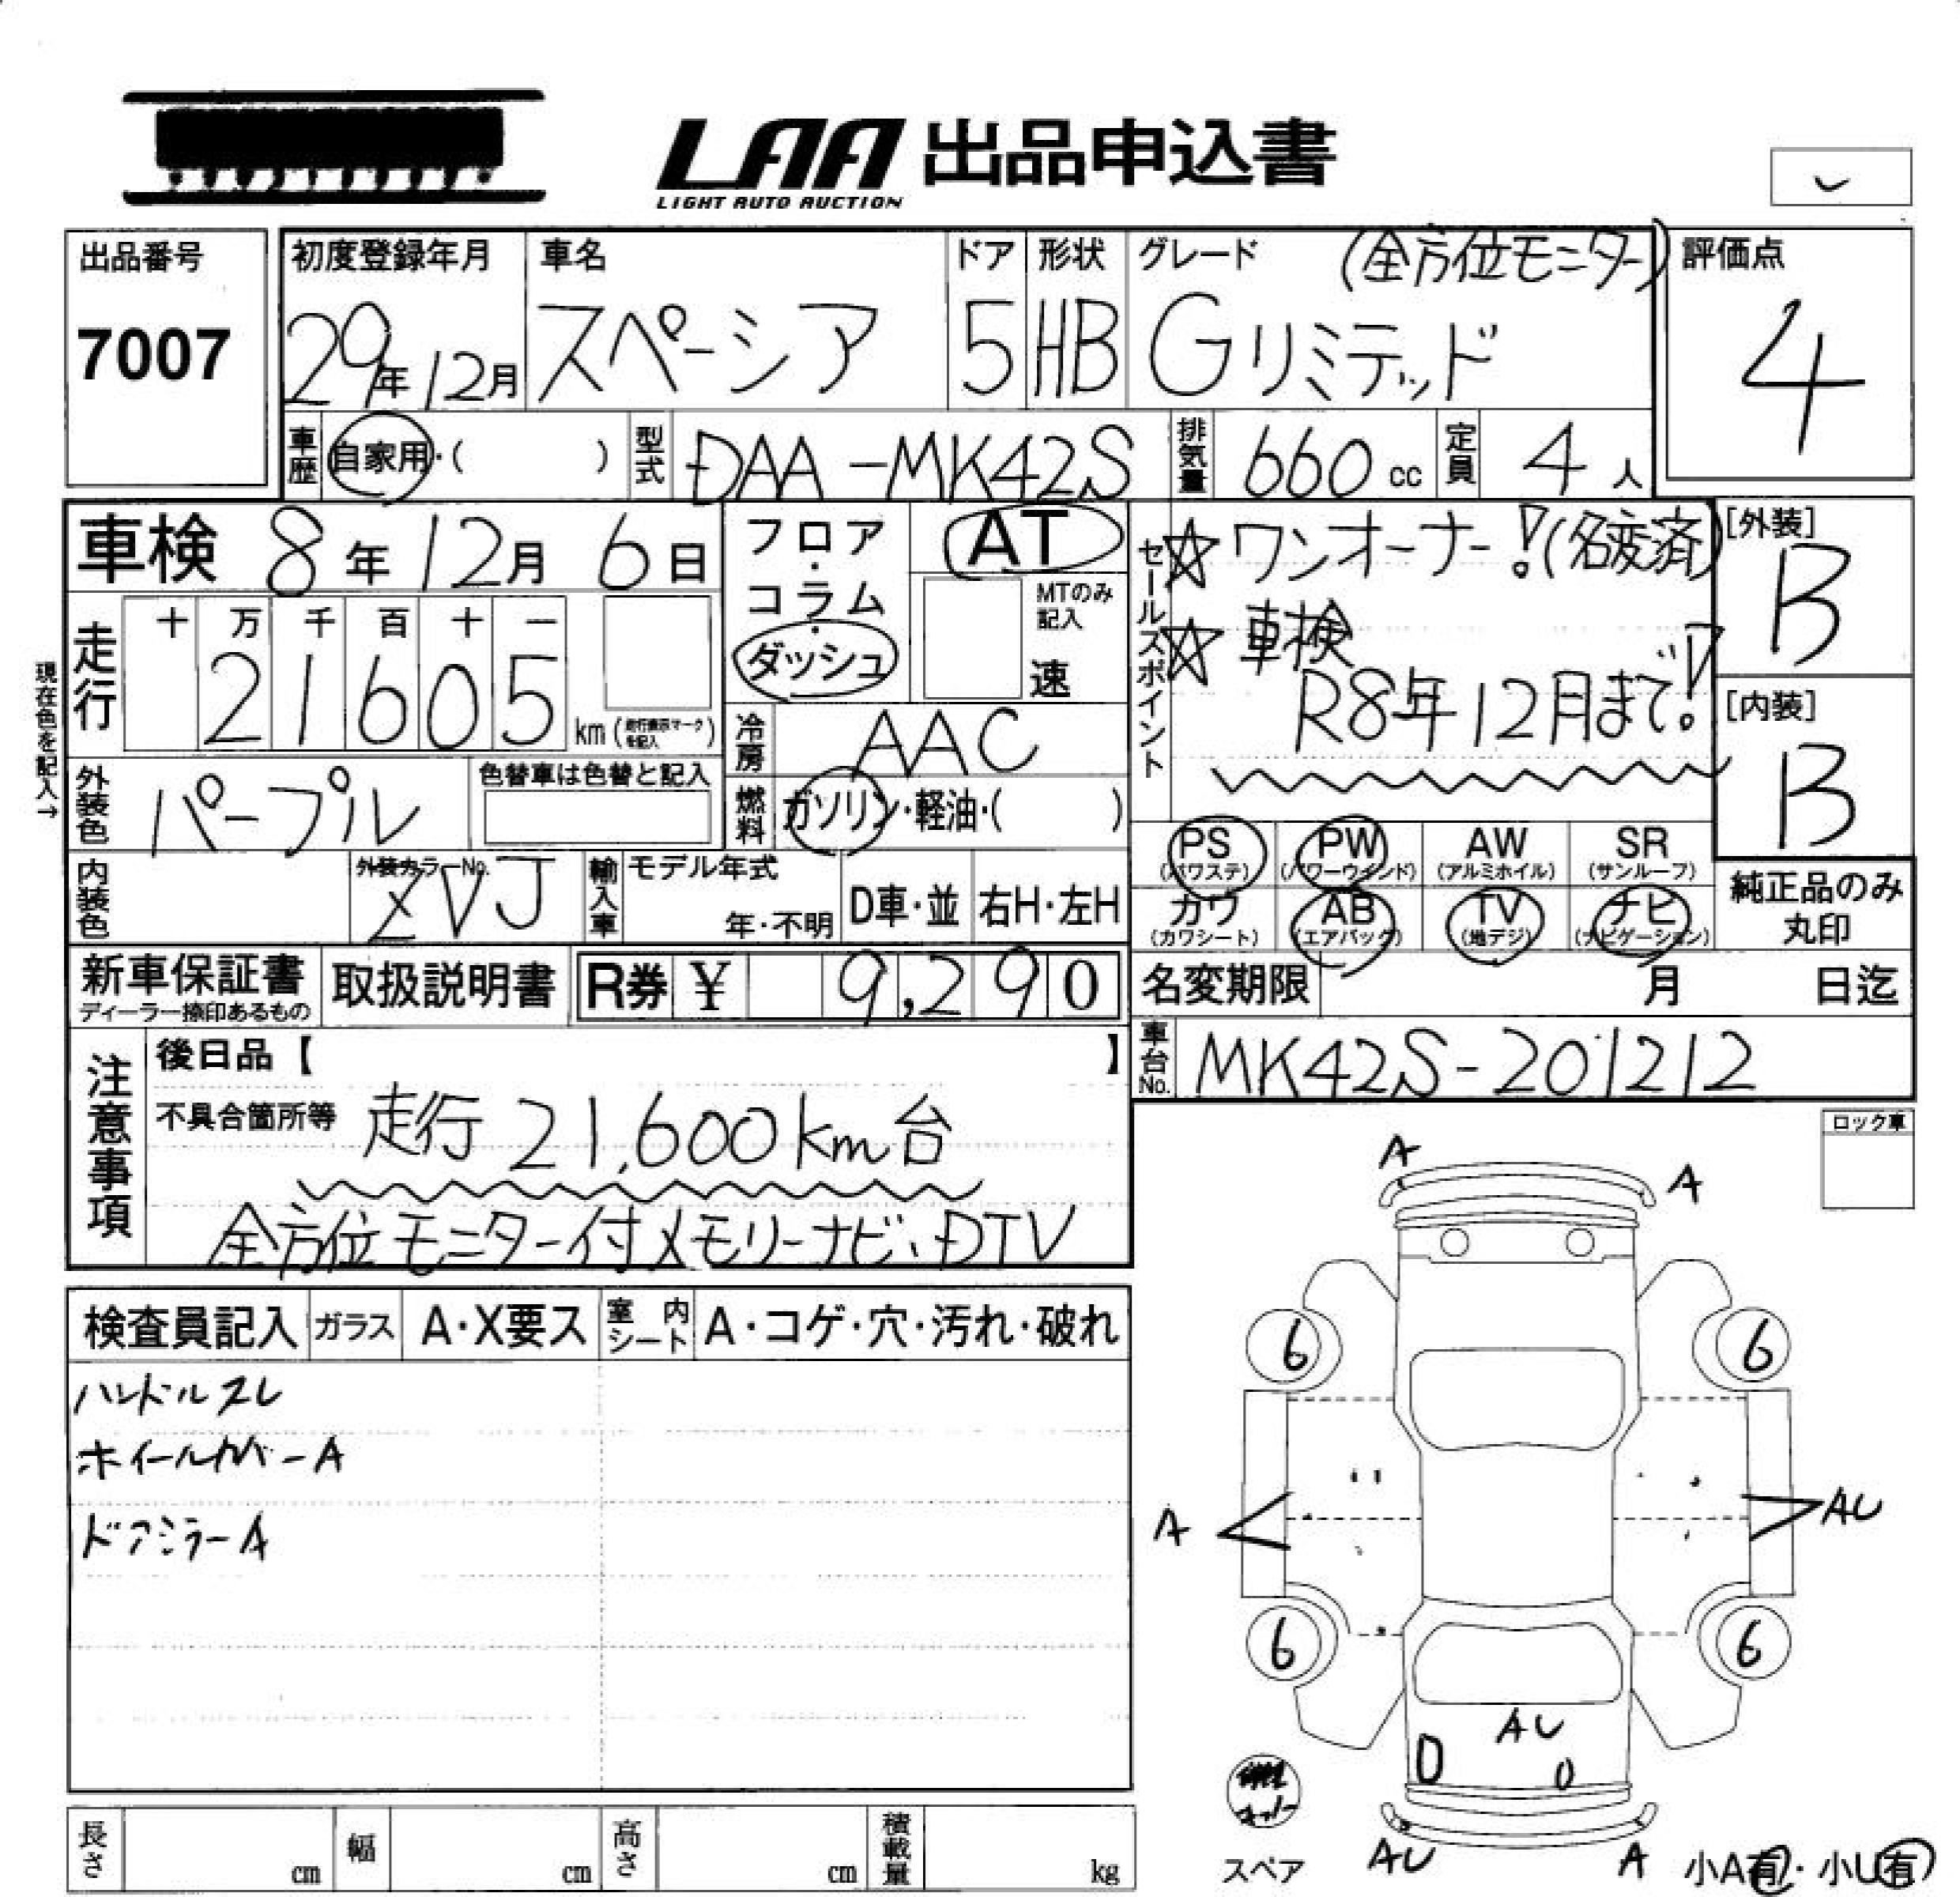 LAA 出品申込書
LIGHT AUTO AUCTION
出品番号
7007
初度登録年月
29年12月
車名
スペーシア
ドア
5
形状
HB
グレード (全方位モニター)
Gリミテッド
評価点
4
車歴 自家用・( )
型式 DAA-MK42S
排気量 660cc
定員 4人
車検 8年12月6日
フロア・コラム・ダッシュ
AT
MTのみ記入
速
セールスポイント
☆ワンオーナー!(名変済)
☆車検
R8年12月まで!!
[外装]
B
[内装]
B
現在色を記入→
走行
十 万 千 百 十 一
2 1 6 0 5 km(走行表示マークを記入)
冷房 AAC
外装色 パープル
色替車は色替と記入
燃料 ガソリン・軽油・( )
内装色
外装カラーNo.
ZVJ
輸入車
モデル年式
年・不明
D車・並
右H・左H
PS (パワステ)
PW (パワーウインド)
AW (アルミホイル)
SR (サンルーフ)
カワ (カワシート)
AB (エアバッグ)
TV (地デジ)
ナビ (ナビゲーション)
純正品のみ
丸印
新車保証書
ディーラー捺印あるもの
取扱説明書
R券 ¥ 9,290
名変期限 月 日迄
車台No. MK42S-201212
注意事項
後日品【 】
不具合箇所等 走行21,600km台
全方位モニター付メモリーナビ、DTV
ロック車
検査員記入
ガラス A・X要ス
室内シート A・コゲ・穴・汚れ・破れ
ハンドルスレ
ホイールカバーA
ドアミラーA
A
A
6
6
A
AU
6
6
AU
AU
A
スペア
小A有・小U有
長さ cm
幅 cm
高さ cm
積載量 kg